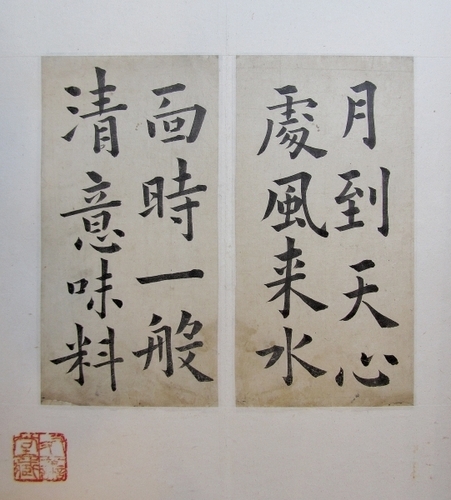 月到天心
處風来水
面時一般
清意味料